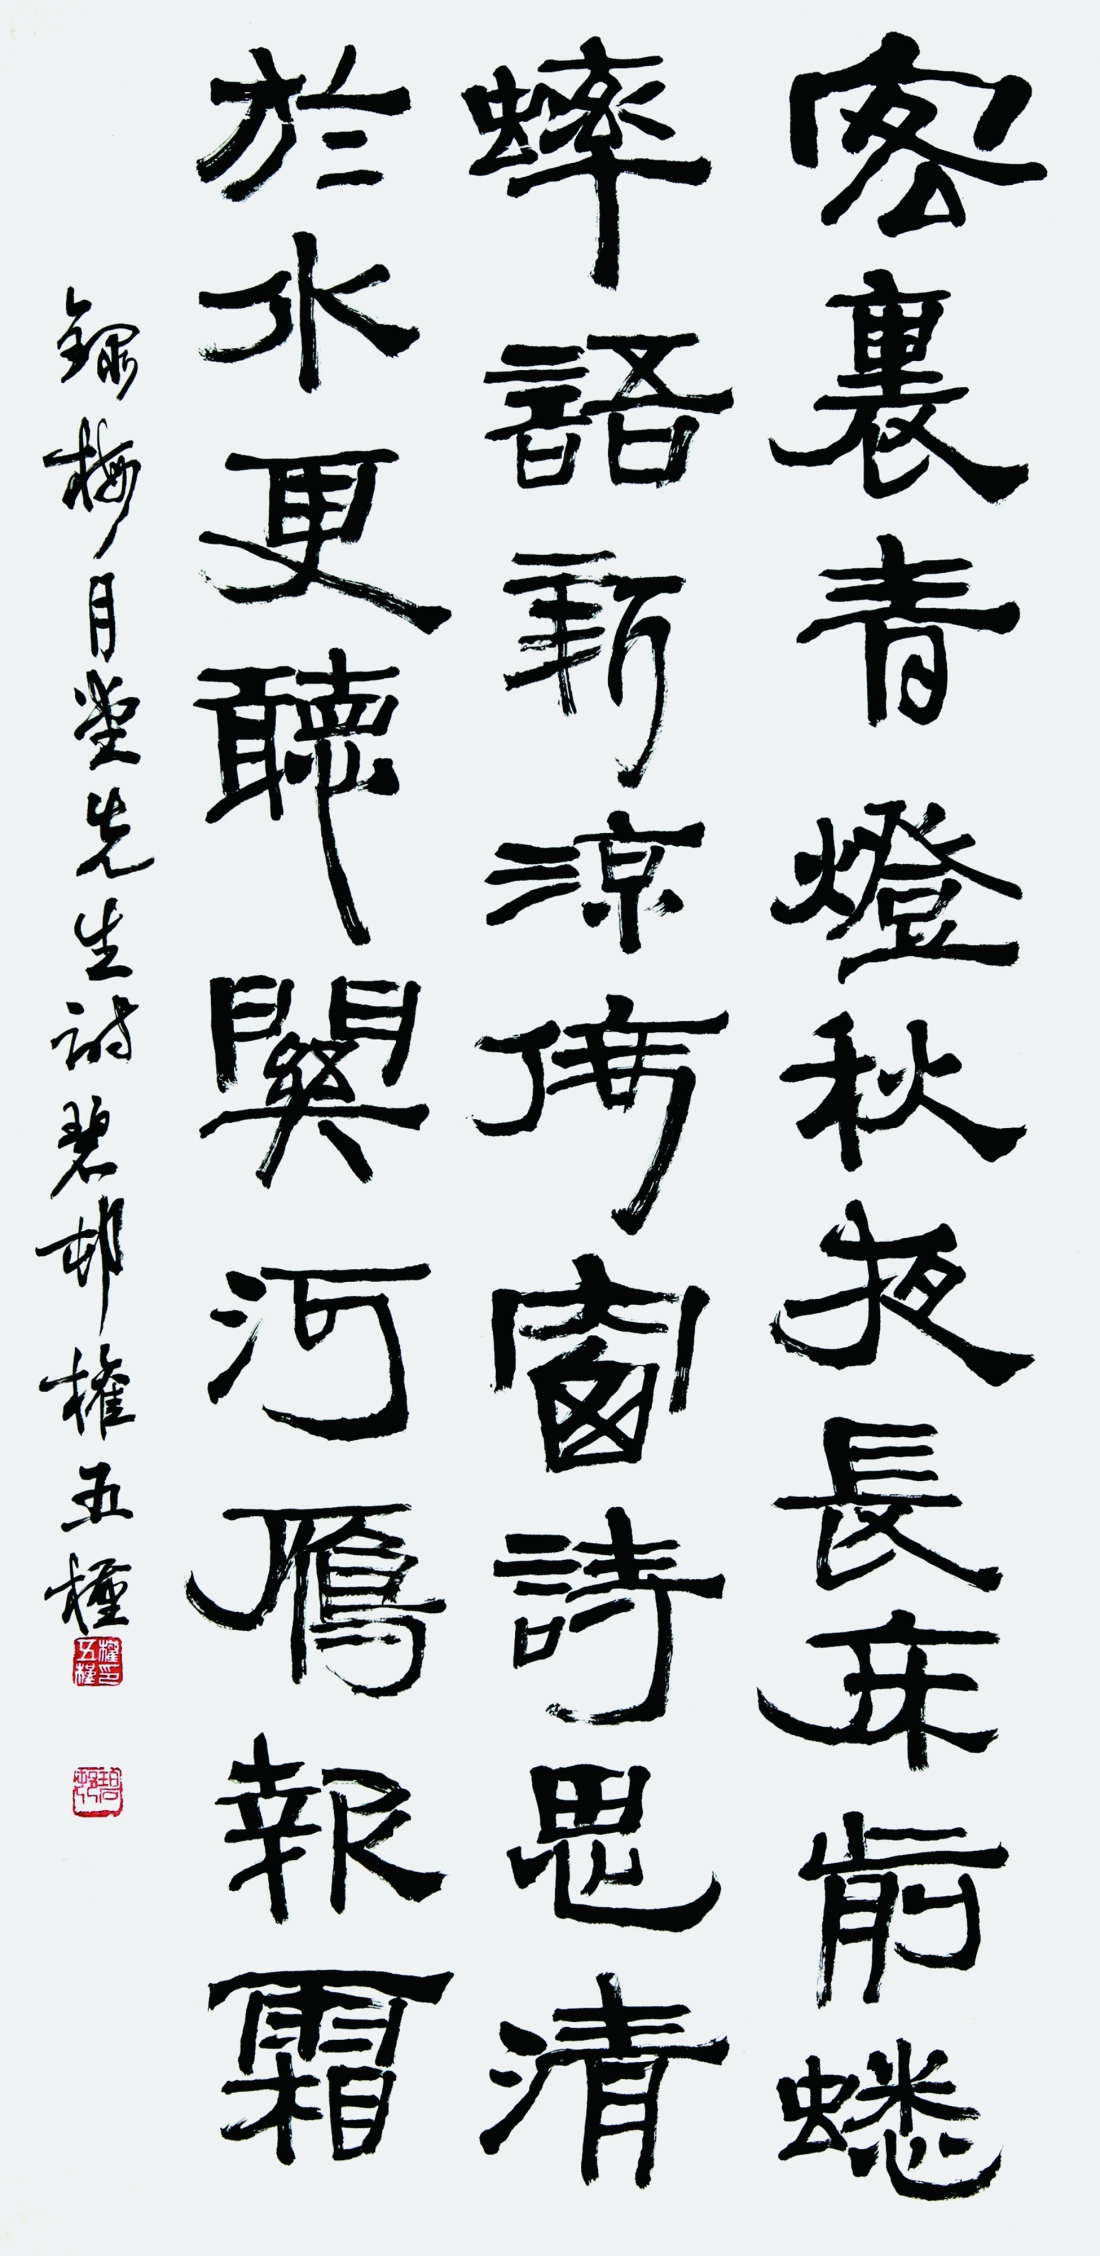 客裏青燈秋夜長床前蟋
蟀語新涼倚窗詩思清
於水更聽關河鴈報霜
錄梅月堂先生詩碧邨權五槿